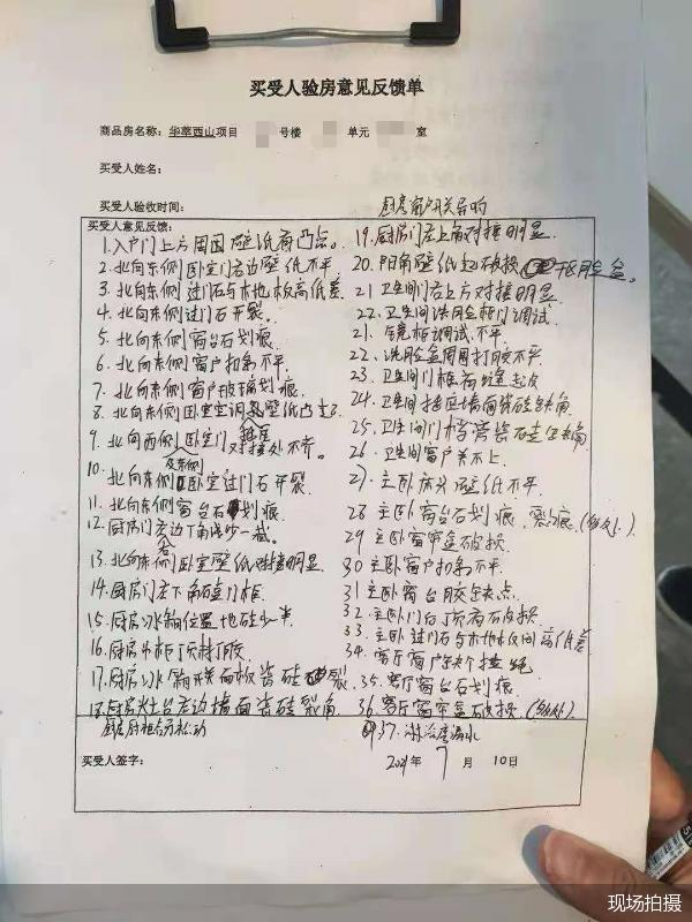 买受人验房意见反馈单
商品房名称：华萃西山项目 号楼 单元 室
买受人姓名：
买受人验收时间：
买受人意见反馈：
1.入户门上方周围壁纸有凸点。
2.北向东侧卧室门右边壁纸不平.
3.北向东侧过门石与木地板高低差
4.北向东侧过门石开裂.
5.北向东侧窗台石划痕.
6.北向东侧窗户扣条不平.
7.北向东侧窗户玻璃划痕.
8.北向东侧卧室空调壁纸凸
9.北向西侧卧室门对接处不齐。
及东侧
10.北向东侧卧室过门石开裂.
11.北向东侧窗台石划痕.
12.厨房门右边下角缺少一截。
13.北向东侧卧室壁纸对接明显
14.厨房门左下角碰门框.
15.厨房冰箱位置地砖少半
16.厨房吊柜顶封打胶
17.厨房冰箱开关面板瓷砖裂.
18.厨房灶台左边墙面瓷砖裂角.
厨房厨柜台面松动
厨房窗户开关异响
19.厨房门左上角对接明显.
20.阳角壁纸起破损
21 卫生间门右上方对接明显.
22.卫生间洗脸盆柜门调试.
21.镜柜调试.不平.
22.洗脸盆周围打胶不严
23.卫生间门框有缝起皮
24.卫生间接座墙面瓷砖缺角.
25.卫生间门档旁瓷砖缺角
26.卫生间窗户关不上.
27.主卧床头壁纸不平.
28 主卧窗台石划痕.裂痕.
29 主卧窗帘盒破损.
30 主卧窗户扣条不平.
31 主卧窗台胶缺点.
32.主卧门口顶有石破损.
33.主卧过门石与木地板间高低差
34.客厅窗户缺个挂绳
35.客厅窗台石划痕
36.客厅窗帘盒破损.
37.淋浴房漏水
买受人签字：
2021年 7 月 10日
现场拍摄